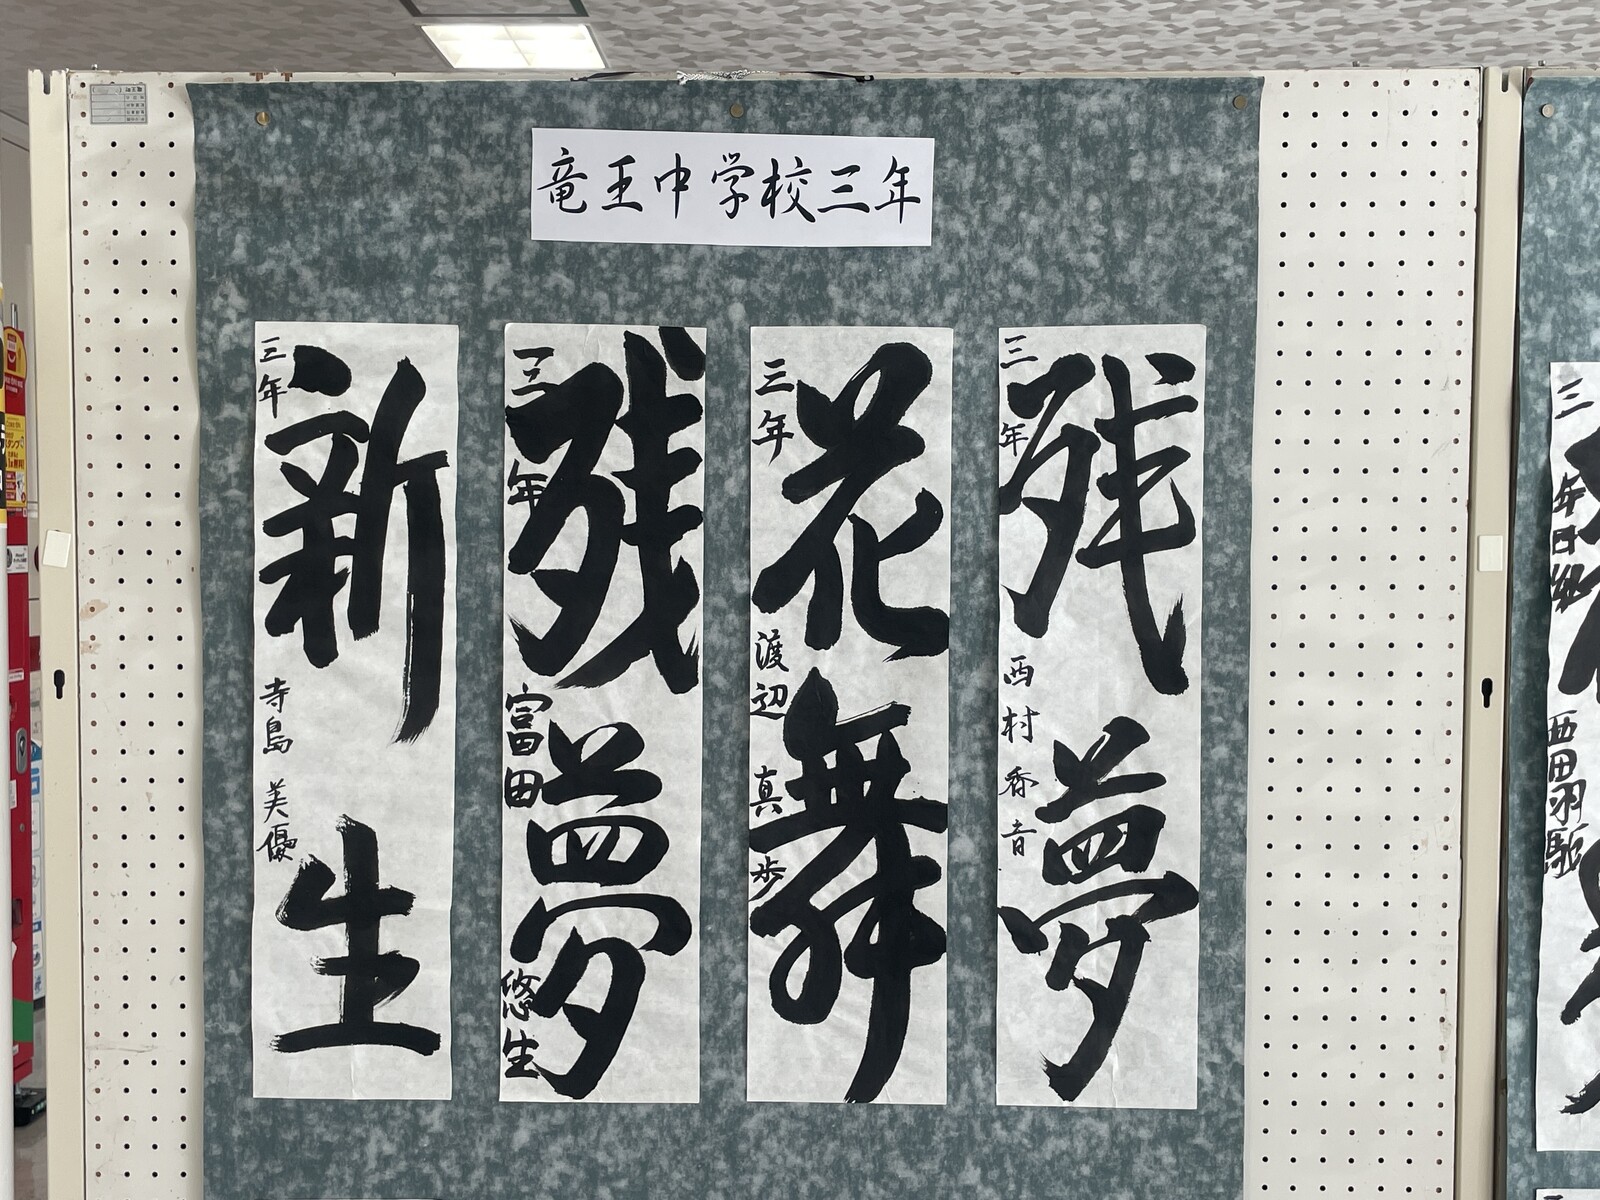 竜王中学校三年
残夢
三年 西村香音
花舞
三年 渡辺真歩
残夢
三年 富田悠生
新生
三年 寺島美優